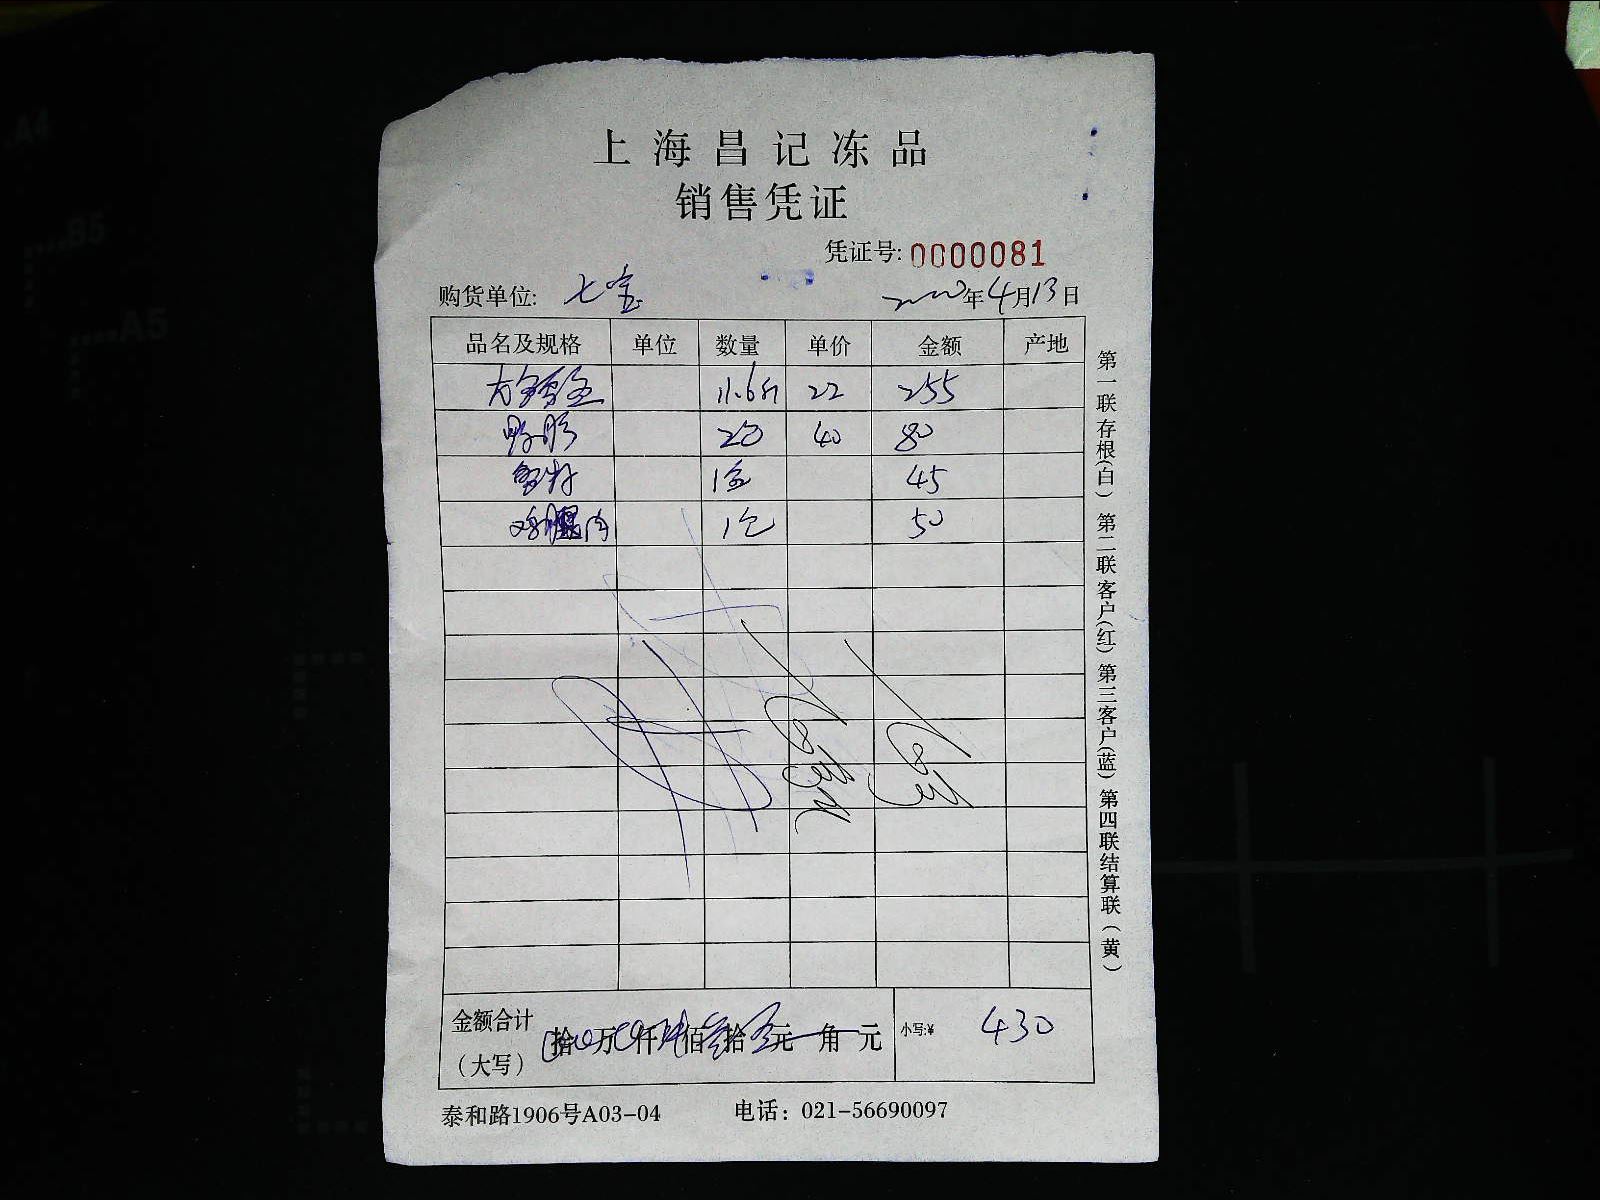 上海昌记冻品
销售凭证
凭证号: 0000081
购货单位: 七宝 年4月13日
品名及规格 单位 数量 单价 金额 产地
11.6斤 22 255
鸭肫 40 80
蟹籽 1盒 45
鸡腿肉 1包 50
金额合计 拾 万 仟 佰 拾 元 角 元 小写:¥ 430
(大写)
泰和路1906号A03-04 电话: 021-56690097
第一联存根(白) 第二联客户(红) 第三客户(蓝) 第四联结算联(黄)
A4
B5
A5